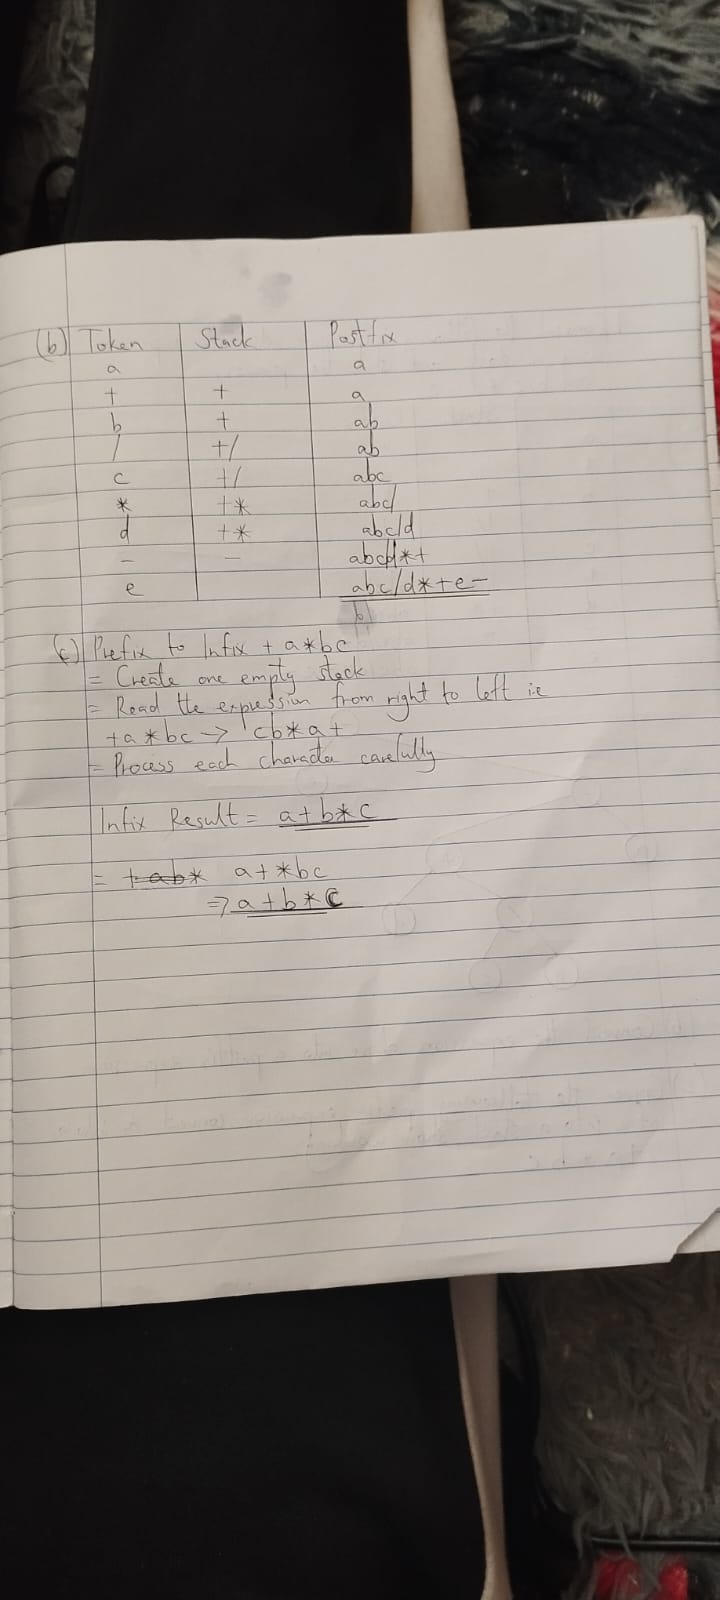 (b) Token Stack Postfix
a a
+ + a
b + ab
/ +/ ab
c +/ abc
* +* abc/
d +* abc/d
- - abc/d*+
e abc/d*+e-
b
(c) Prefix to Infix + a*bc
= Create one empty stack
= Read the expression from right to left i.e
+a*bc → cb*a+
= Process each character carefully
Infix Result = a+b*c
= +ab* a+*bc
⇒ a+b*c